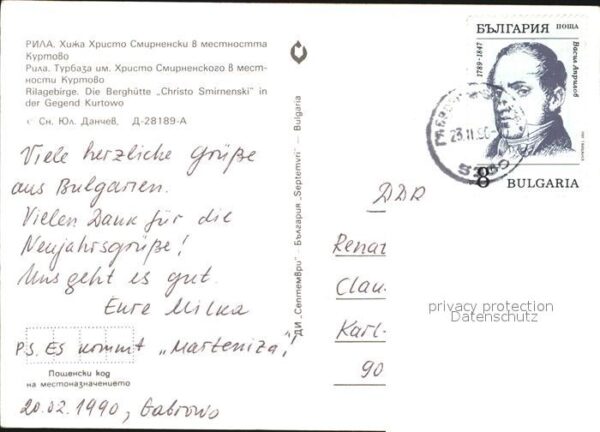 РИЛА. Хижа Христо Смирненски в местността
Куртово
Рила. Турбаза им. Христо Смирненского в мест-
ности Куртово
Rilagebirge. Die Berghütte „Christo Smirnenski" in
der Gegend Kurtowo
Сн. Юл. Данчев, Д-28189-А
Viele herzliche Grüße
aus Bulgarien.
Vielen Dank für die
Neujahrsgrüße!
Uns geht es gut.
Eure Milka
P.S. Es kommt „Marteniza"!
Пощенски код
на местоназначението
20.02.1990, Gabrowo
ДИ „Септември" - България „Septemvri" - Bulgaria
БЪЛГАРИЯ ПОЩА
1789-1847
Васил Априлов
8 BULGARIA
23.II.90
5300
DDR
Renat
Clau
Karl-
90
privacy protection
Datenschutz